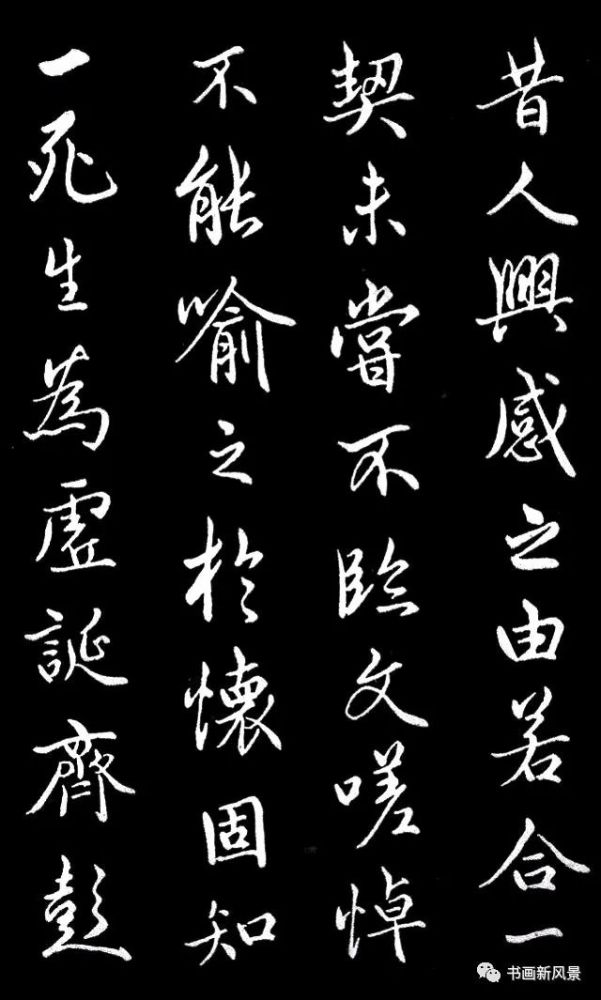 昔人興感之由若合一
契未嘗不臨文嗟悼
不能喻之於懷固知
一死生為虛誕齊彭
书画新风景